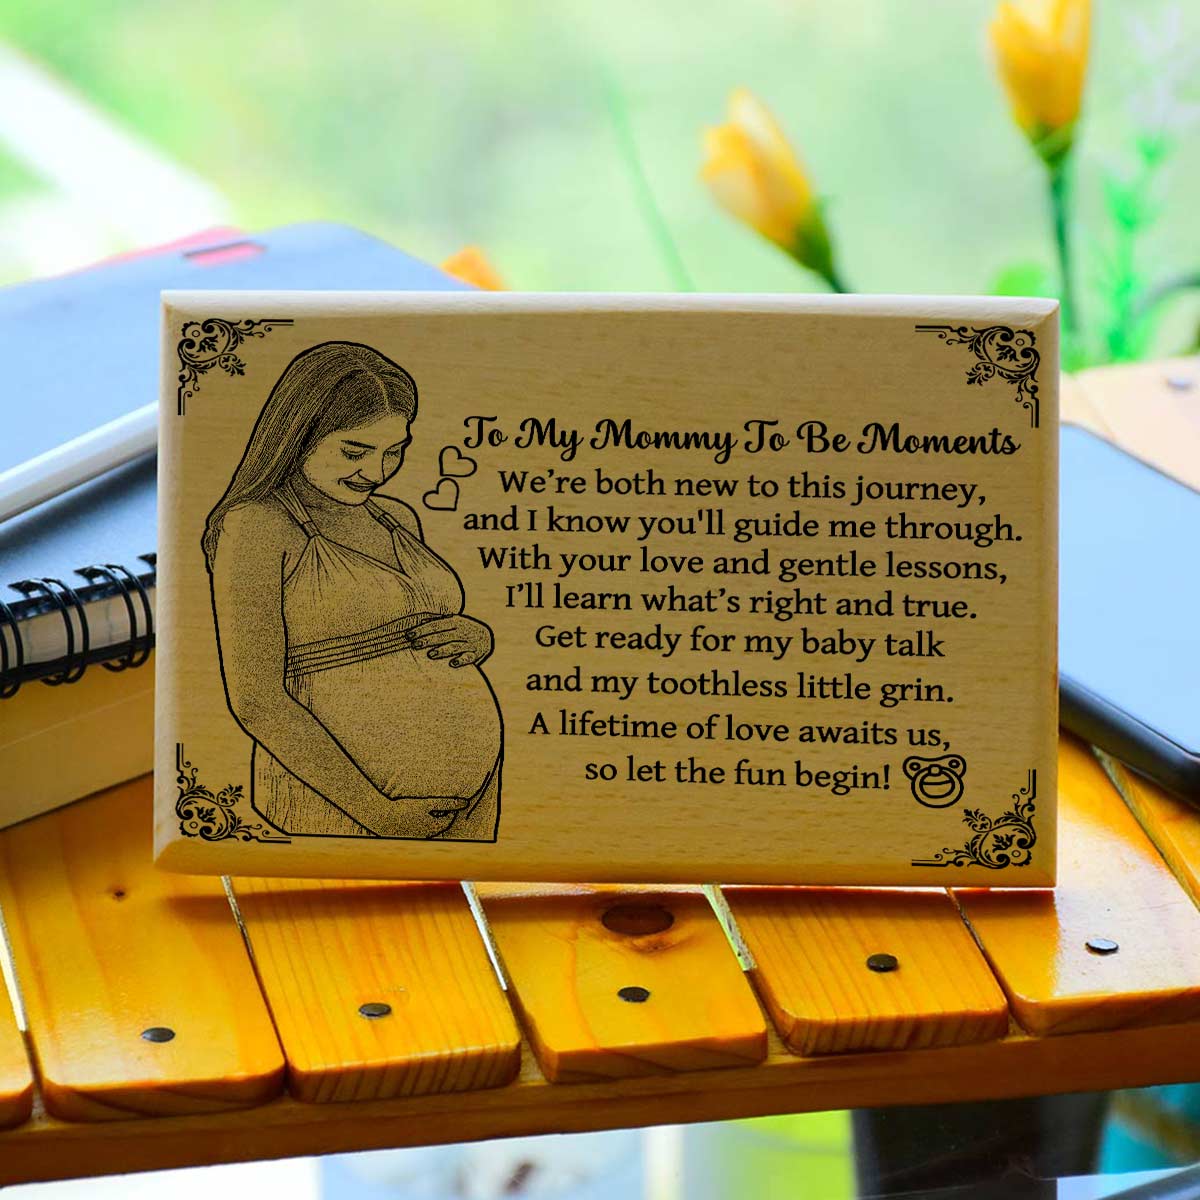 To My Mommy To Be Moments
We’re both new to this journey,
and I know you'll guide me through.
With your love and gentle lessons,
I’ll learn what’s right and true.
Get ready for my baby talk
and my toothless little grin.
A lifetime of love awaits us,
so let the fun begin!